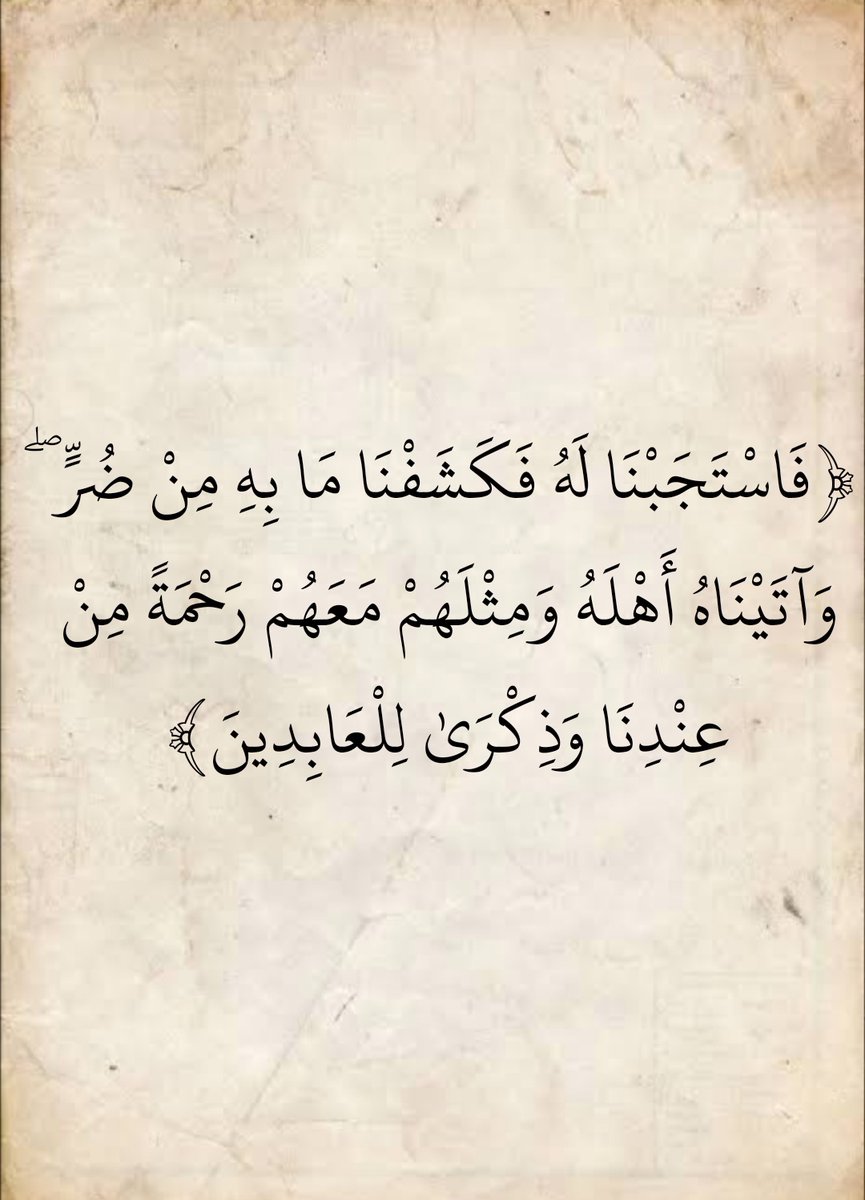 ﴿ فَاسْتَجَبْنَا لَهُ فَكَشَفْنَا مَا بِهِ مِنْ ضُرٍّ ۖ
وَآتَيْنَاهُ أَهْلَهُ وَمِثْلَهُمْ مَعَهُمْ رَحْمَةً مِنْ
عِنْدِنَا وَذِكْرَىٰ لِلْعَابِدِينَ ﴾